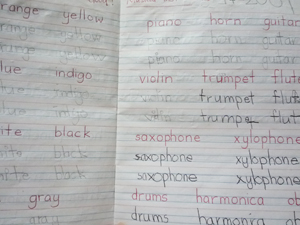 range yellow
range yellow
range yellow
lue indigo
lue indigo
lue indigo
ite black
hite black
hite black
gray
gray
piano horn guitar
piano horn guitar
piano horn guitar
violin trumpet flut
violin trumpet flut
violin trumpet flut
saxophone xylophone
saxophone xylophone
saxophone xylophone
drums harmonica ob
drums harmonica ob